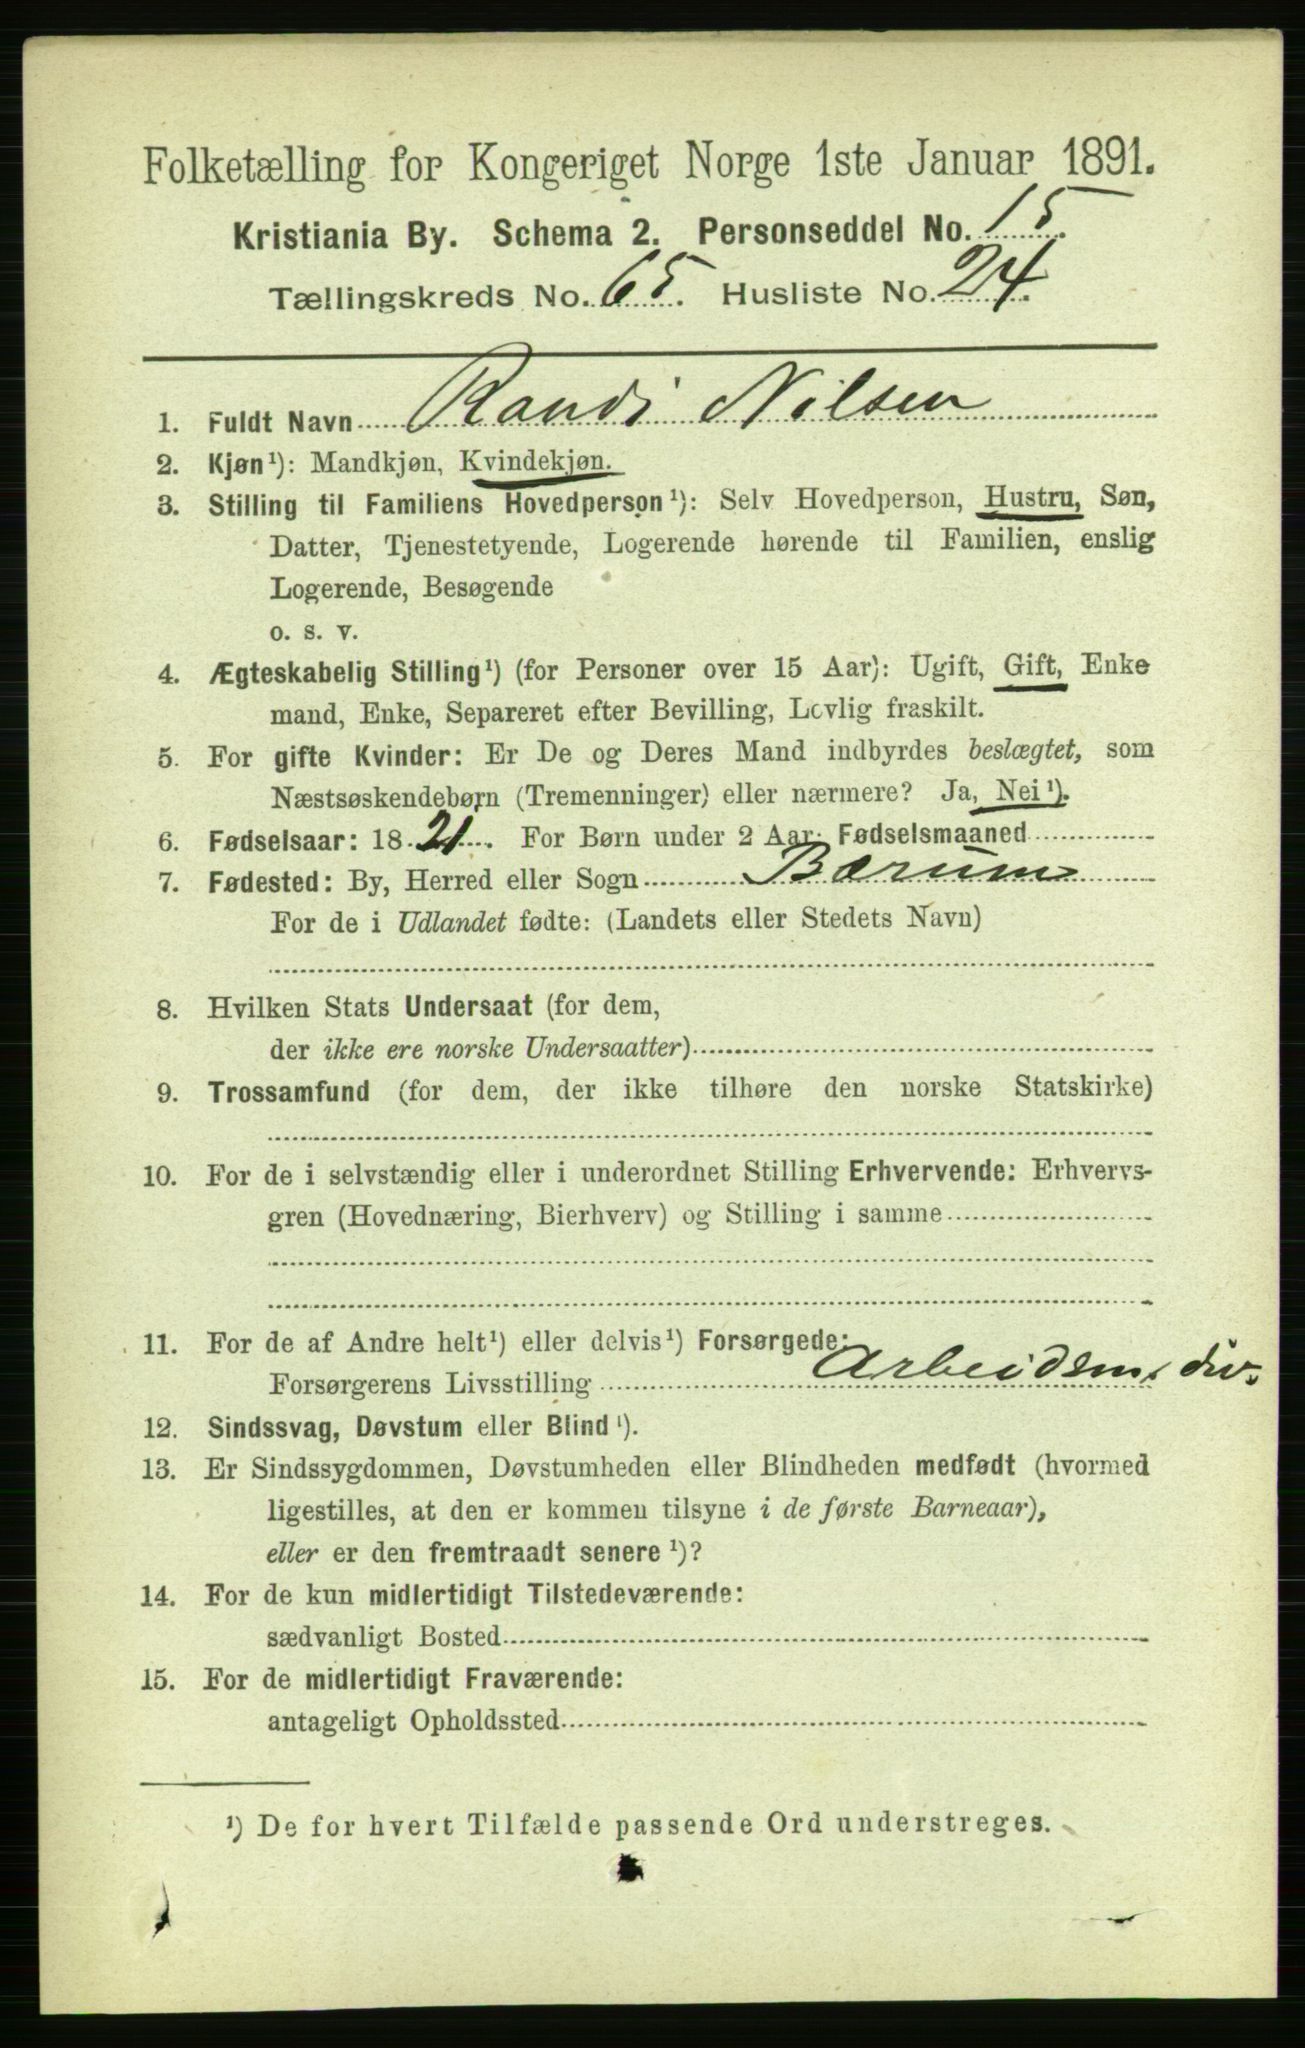 Folketælling for Kongeriget Norge 1ste Januar 1891.
Kristiania By. Schema 2. Personseddel No. 15.
Tællingskreds No. 65. Husliste No. 24.
1. Fuldt Navn Randi Nilsen
2. Kjøn¹): Mandkjøn, Kvindekjøn.
3. Stilling til Familiens Hovedperson¹): Selv Hovedperson, Hustru, Søn,
Datter, Tjenestetyende, Logerende hørende til Familien, enslig
Logerende, Besøgende
o. s. v.
4. Ægteskabelig Stilling¹) (for Personer over 15 Aar): Ugift, Gift, Enke
mand, Enke, Separeret efter Bevilling, Lovlig fraskilt.
5. For gifte Kvinder: Er De og Deres Mand indbyrdes beslægtet, som
Næstsøskendebørn (Tremenninger) eller nærmere? Ja, Nei¹).
6. Fødselsaar: 18 21. For Børn under 2 Aar: Fødselsmaaned
7. Fødested: By, Herred eller Sogn Bærum
For de i Udlandet fødte: (Landets eller Stedets Navn)
8. Hvilken Stats Undersaat (for dem,
der ikke ere norske Undersaatter)
9. Trossamfund (for dem, der ikke tilhøre den norske Statskirke)
10. For de i selvstændig eller i underordnet Stilling Erhvervende: Erhvervs-
gren (Hovednæring, Bierhverv) og Stilling i samme
11. For de af Andre helt¹) eller delvis¹) Forsørgede:
Forsørgerens Livsstilling Arbeidsm. div.
12. Sindssvag, Døvstum eller Blind¹).
13. Er Sindssygdommen, Døvstumheden eller Blindheden medfødt (hvormed
ligestilles, at den er kommen tilsyne i de første Barneaar),
eller er den fremtraadt senere¹)?
14. For de kun midlertidigt Tilstedeværende:
sædvanligt Bosted
15. For de midlertidigt Fraværende:
antageligt Opholdssted
¹) De for hvert Tilfælde passende Ord understreges.